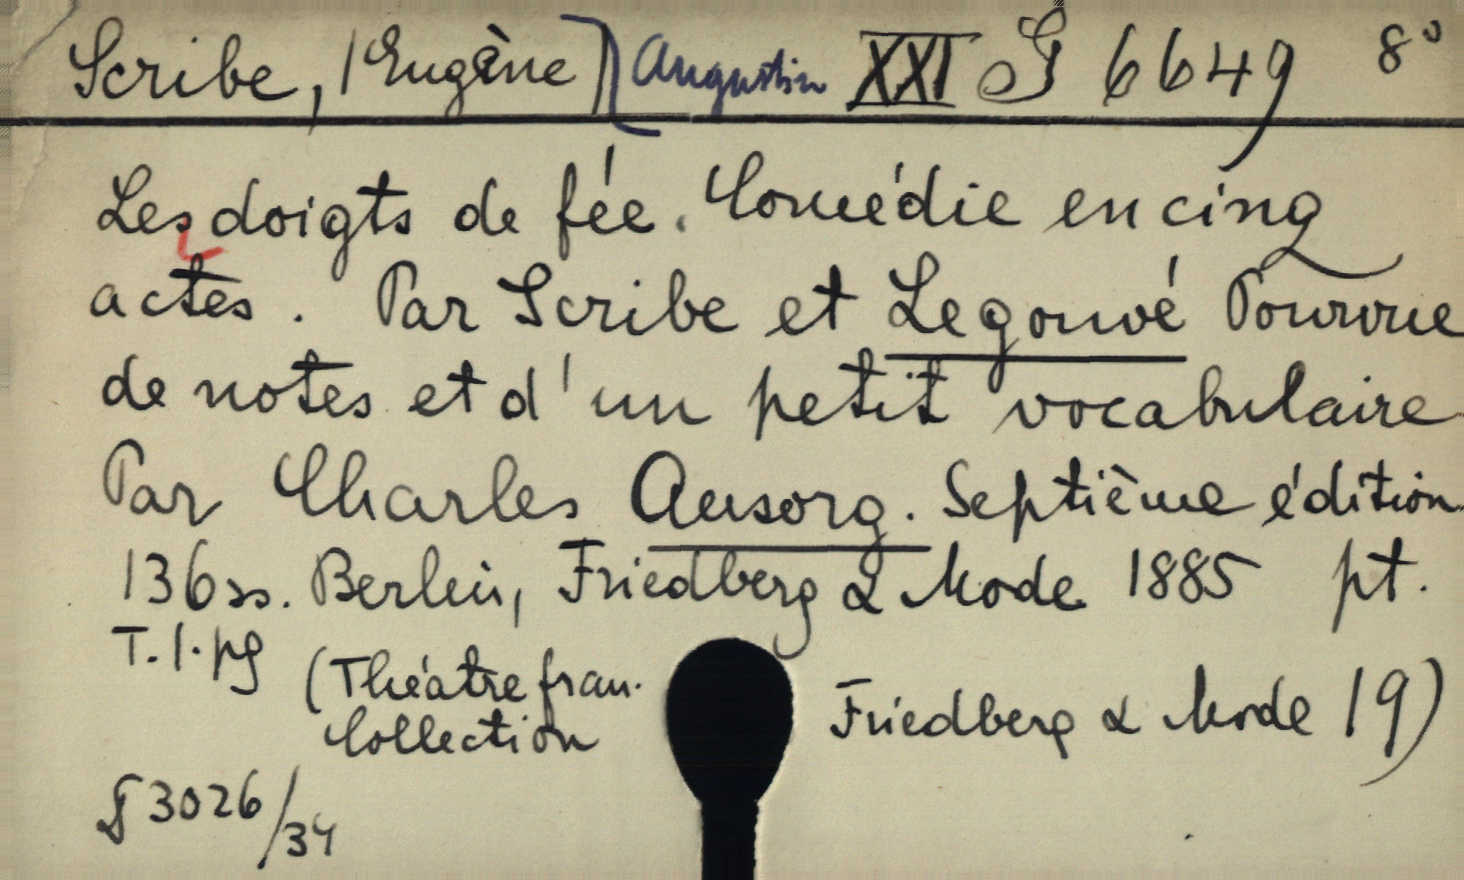 Scribe, /Eugène) [Augustin XXI S 6649 8°
Les doigts de fée. Comédie en cinq
actes. Par Scribe et Legouvé Pourvue
de notes et d'un petit vocabulaire
Par Charles Ausorg. Septième édition
136 ss. Berlin, Friedberg & Mode 1885 pt.
T. 1. pg
(Théatre fran. Friedberg & Mode 19)
Collection
§ 3026/34